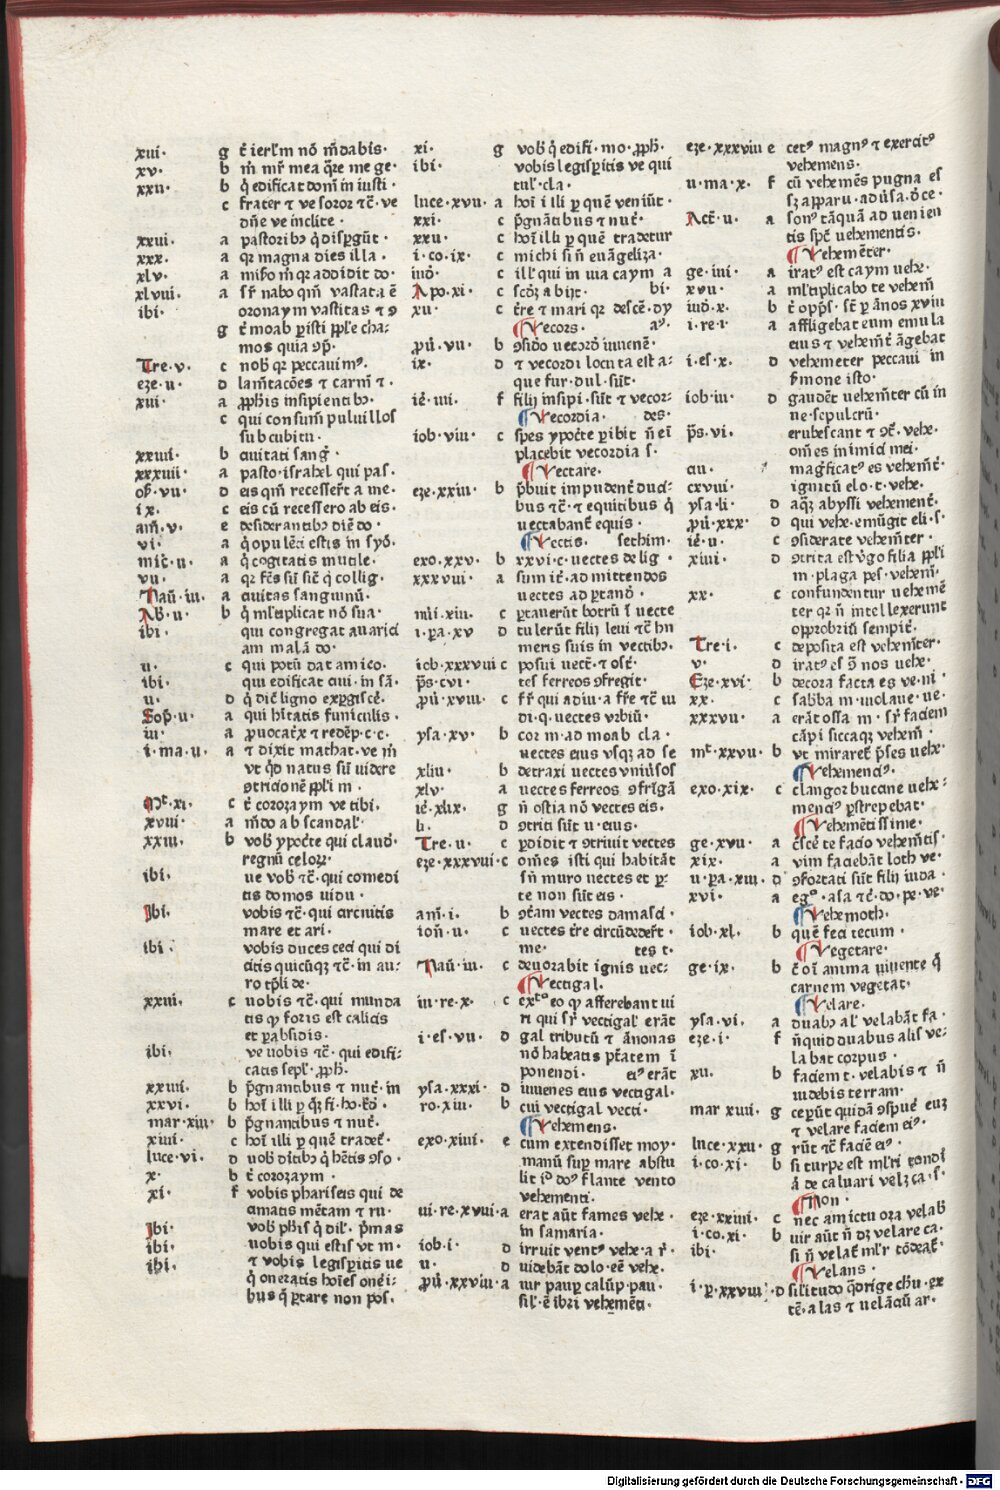 xvi· g t̄ ierl'm nō m̄dabis·
xv· b m̄ mr̄ mea q̄re me ge·
xxii· b q̄ edificat dom̄ in iusti·
c frater ⁊ ve soror ⁊c̄· ve
dn̄e ve inclite·
xxiii· a pastoribꝫ q̄ disꝑgūt·
xxx· a qꝛ magna dies illa·
xlv· a mihō m̄ qꝛ addidit do·
xlviii· a sr̄ nabo qm̄ vastata ē
ibi· oronaym vastitas ⁊ ꝯ
g t̄ moab ꝑisti ppl'e cha-
mos quia ꝯp̄·
Tre·v· c nob̄ qꝛ peccauimꝰ·
eze·ii· d lam̄tacōes ⁊ carm̄ ⁊·
xiii a ꝓph̄is insipientibꝫ·
c qui consuūt puluillos
sub cubitu·
xxiiii· b ciuitati sanḡ·
xxxiiii· a pasto·israhel qui pas·
os̄·vii· d eis qm̄ recesser̄t a me·
ix· c eis cū recessero ab eis·
am̄·v· e desiderantibꝫ diē do·
vi· a q̄ opulēti estis in syō·
mic̄·ii· a q̄ cogitatis inutile·
vii· a qꝛ fc̄s sū sic̄ q̄ collig·
Naū·iii· a ciuitas sanguinū·
Ab̄·ii· b q̄ ml'tiplicat nō sua·
ibi· qui congregat auarici
am malā do·
ii· c qui potū dat amico·
ibi· qui edificat ciui·in sā·
ii· d q̄ dic̄ ligno exꝑgisce·
Sop̄·ii· a qui h̄itatis funiculis·
iii· a ꝓuocatꝛ̄ ⁊ redēp·c·c·
i·ma·ii· a ⁊ dixit mathat·ve m̄
vt q̄d natus sū videre
ꝯtricionē ppl'i m·
Mt̄·xi· c t̄ corozaym ve tibi·
xviii a m̄do ab scandal'·
xxiii· b vob̄ ypocte qui claud·
regnū celoꝝ·
ibi· ue vob̄ ⁊c̄·qui comedi
tis domos uidu·
Ibi· vobis ⁊c̄·qui circuitis
mare et ari·
ibi· vobis duces ceci qui di
citis quicūqꝫ ⁊c̄·in au-
ro tp̄li de·
xxiii· c uobis ⁊c̄·qui munda
tis qꝫ foris est calicis
et ꝑabsidis·
ibi· ve uobis ⁊c̄·qui edifi-
catis sepl'·ꝓph̄·
xxiiii· b p̄gnantibus ⁊ nut̄·in
xxvi· b hoī illi ꝑ qꝫ fi·ho·tō·
mar·xiii· b p̄gnantibus ⁊ nut̄·
xiiii· c hoī illi ꝑ quē tradet̄·
luce·vi· d uob̄ diītibꝫ q̄ h̄etis ꝯso·
x· b t̄ corozaym·
xi· f vobis phariseis qui de
cimatis mētam ⁊ ru·
Ibi· vob̄ ph̄is q̄ dil'·p̄mas
ibi· uobis qui estis vt m·
ibi· ⁊ vobis legisꝑitis ue
q̄ oneratis hoīes onei-
bus q̄ ꝑtare non pos·
xi· g vob̄ q̄ edifi·mo·ꝓph̄·
ibi· vobis legisꝑitis ve qui
tul'·cla·
luce·xvii· a hoī illi ꝑ quē veniūt·
xxi· c p̄gnātibus ⁊ nut̄·
xxii· c hoī illi ꝑ quē tradetur
i·co·ix· c michi si n̄ euāgeliza·
iud̄· c ill' qui in uia caym a
Apo·xi· c scd̄ꝫ abijt· bi·
xii· c t̄re ⁊ mari qꝛ descē·dy
¶ Vecors· aꝰ·
ꝓū·vii· b ꝯsid̄o uecord̄ iuuenē·
ix· d ⁊ vecordi locuta est a-
que fur·dul·sūt·
ie̅·iiii· f filij insipi·sūt ⁊ vecor-
¶ Vecordia· des·
iob·viii· c spes ypoc̄te ꝑibit n̄ eī
placebit vecordia s·
¶ Vectare·
eze·xxiii· b p̄buit impudent̄ duci-
bus ⁊c̄·⁊ equitibus q̄
uectabant̄ equis·
¶ Vectis· sethim·
exo·xxv· b xxvi·c·uectes de lig·
xxxvii· a sum ic̄·ad mittendos
uectes ad ꝑtand̄·
nūi·xiii· c ꝑtauerūt botrū ī uecte
i·ꝑa·xv d tulerūt filij leui ⁊c̄ hn
meris suis in vectibꝫ·
iob·xxxviii c posui uect̄·⁊ ost̄·
p̄s·cvi· tes ferreos ꝯfregit·
ꝓū·xviii· c fr̄ qui adiu·a fr̄e ⁊c̄ iu
di·q·uectes vrbiū·
ysa·xv· b cor m·ad moab cla·
uectes eius vsqꝫ ad se
xliii· b detraxi uectes vniūsos
xlv· a uectes ferreos ꝯfrīgā
ie̅·xlix· g n̄ ostia nō vectes eis·
li· d ꝯtriti sūt u·eius·
Tre·ii· c ꝑdidit ⁊ ꝯtriuit vectes
eze·xxxviii·c om̄es isti qui habitāt
sn̄ muro uectes et ꝑ-
te non sūt eis·
am̄·i· b ꝯt̄am vectes damasci·
ion̄·ii· c uectes t̄re circūdeder̄t·
me· tes t·
Naū·iii· c deuorabit ignis uec-
¶ Vectigal·
iii·re·x· c ex̄tᵒ eo qꝫ afferebant ui
ri qui sꝛ̄ vectigal' erāt
i·es·vii· d gal tributū ⁊ ānonas
nō habeatis p̄tatem ī
ponendi· eiꝰ erāt
ysa·xxxi· d iuuenes eius vectigal·
ro·xiii· b cui vectigal vecti·
¶ Vehemens·
exo·xiiii· e cum extendisset moy·
manū suꝑ mare abstu
lit iᵒ doꝰ flante vento
vehementi·
iiii·re·xviii·a erat aūt fames vehe·
in samaria·
iob·i· d irruit ventꝰ vehe·a r̄·
ii· d uidebāt dolo·eē vehe·
ꝓū·xxviii·a uir pauꝑ calūp·pau·
sil'·ē ibri vehemēti·
eze·xxxviii e cetꝰ magnꝰ ⁊ exercitꝰ
vehemens·
ii·ma·x· f cū vehemēs pugna es
sꝫ apparu·aduūsa·d̄ce·
Act̄·ii· a sonꝰ tāquā aduenien
tis spc̄ uehementis·
¶ Vehemēter·
ge·iiii· a iratꝰ est caym uehe·
xvii· a ml'tiplicabo te vehem̄
iud̄·x· b t̄ opp̄s·st̄ ꝑ ānos xviii
i·re·i· a affligebat eum emula
eius ⁊ vehem̄t̄ āgebat
i·es·x· d vehemeter peccaui in
s̄mone isto·
iob·iii· d gaudēt uehem̄ter cū in
ue·sepulcrū·
p̄s·vi· erubescant ⁊ ꝯt̄·vehe·
om̄es inimici mei·
ciii· mag̅ficatꝰ es vehem̄t̄·
cxviii· ignitū elo·t·vehe·
ysa·li· d aqꝫ abyssi vehement̄·
ꝓū·xxx· d qui vehe·emūgit eli·s·
ie̅·ii· c ꝯsiderate vehem̄ter·
xiiii d ꝯtrita est v̄go filia ppl'i
m·plaga pes·vehem̄·
xx· c confundentur uehemē
ter qꝛ n̄ intellexerunt
opprobriū sempit̄·
Tre·i· c deposita est vehem̄ter·
v· d iratꝰ es ꝯ̄ nos uehe·
Eze·xvi· b decora facta es ve·ni·
xx· c sabb̄a m·uiolaue·ue·
xxxvii· a erāt ossa m·sꝛ̄ faciem
cāpi siccaqꝫ vehem̄·
mt̄·xxvii· b vt miraret̄ p̄ses uehe·
¶ Vehemenciꝰ·
exo·xix· c clangor bucine uehe-
menciꝰ ꝑstrepebat·
¶ Vehemētissime·
ge·xvii· a c̄scē te facio vehem̄tis·
xix· a vim faciebāt loth ve·
ii·ꝑa·xiii· d ꝯfortati sūt filij iuda·
xvi· a egᵒ·asa ⁊c̄·do·pe·ve·
¶ Vehemoth·
iob·xl· b quē feci tecum·
¶ Vegetare·
ge·ix· b t̄ oī anima uiuente q̄
carnem vegetat·
¶ Velare·
ysa·vi· a duabꝫ al' velabāt fa·
eze·i· f n̄quid duabus alis ve-
labat corpus·
xii· b faciem t·velabis ⁊ n̄
uidebis terram·
mar xiiii· g ceꝑūt quidā ꝯspue' euꝫ
⁊ velare faciem eiꝰ·
luce·xxii· g rūt ⁊c̄ faciē eiꝰ·
i·co·xi· b si turpe est ml'ri tondi
ā de caluari velꝫ ca·s·
¶ Non·
eze·xxiiii· c nec amictu ora velab̄
i·co·xi· b uir aūt n̄ dꝫ velare ca·
ibi· si n̄ velat̄ ml'r tōdeat̄·
¶ Velans·
i·ꝑ·xxviii·d sil'itudo q̄drige ch̄u·ex
tē·alas ⁊ uelāciū ar·
Digitalisierung gefördert durch die Deutsche Forschungsgemeinschaft - DFG